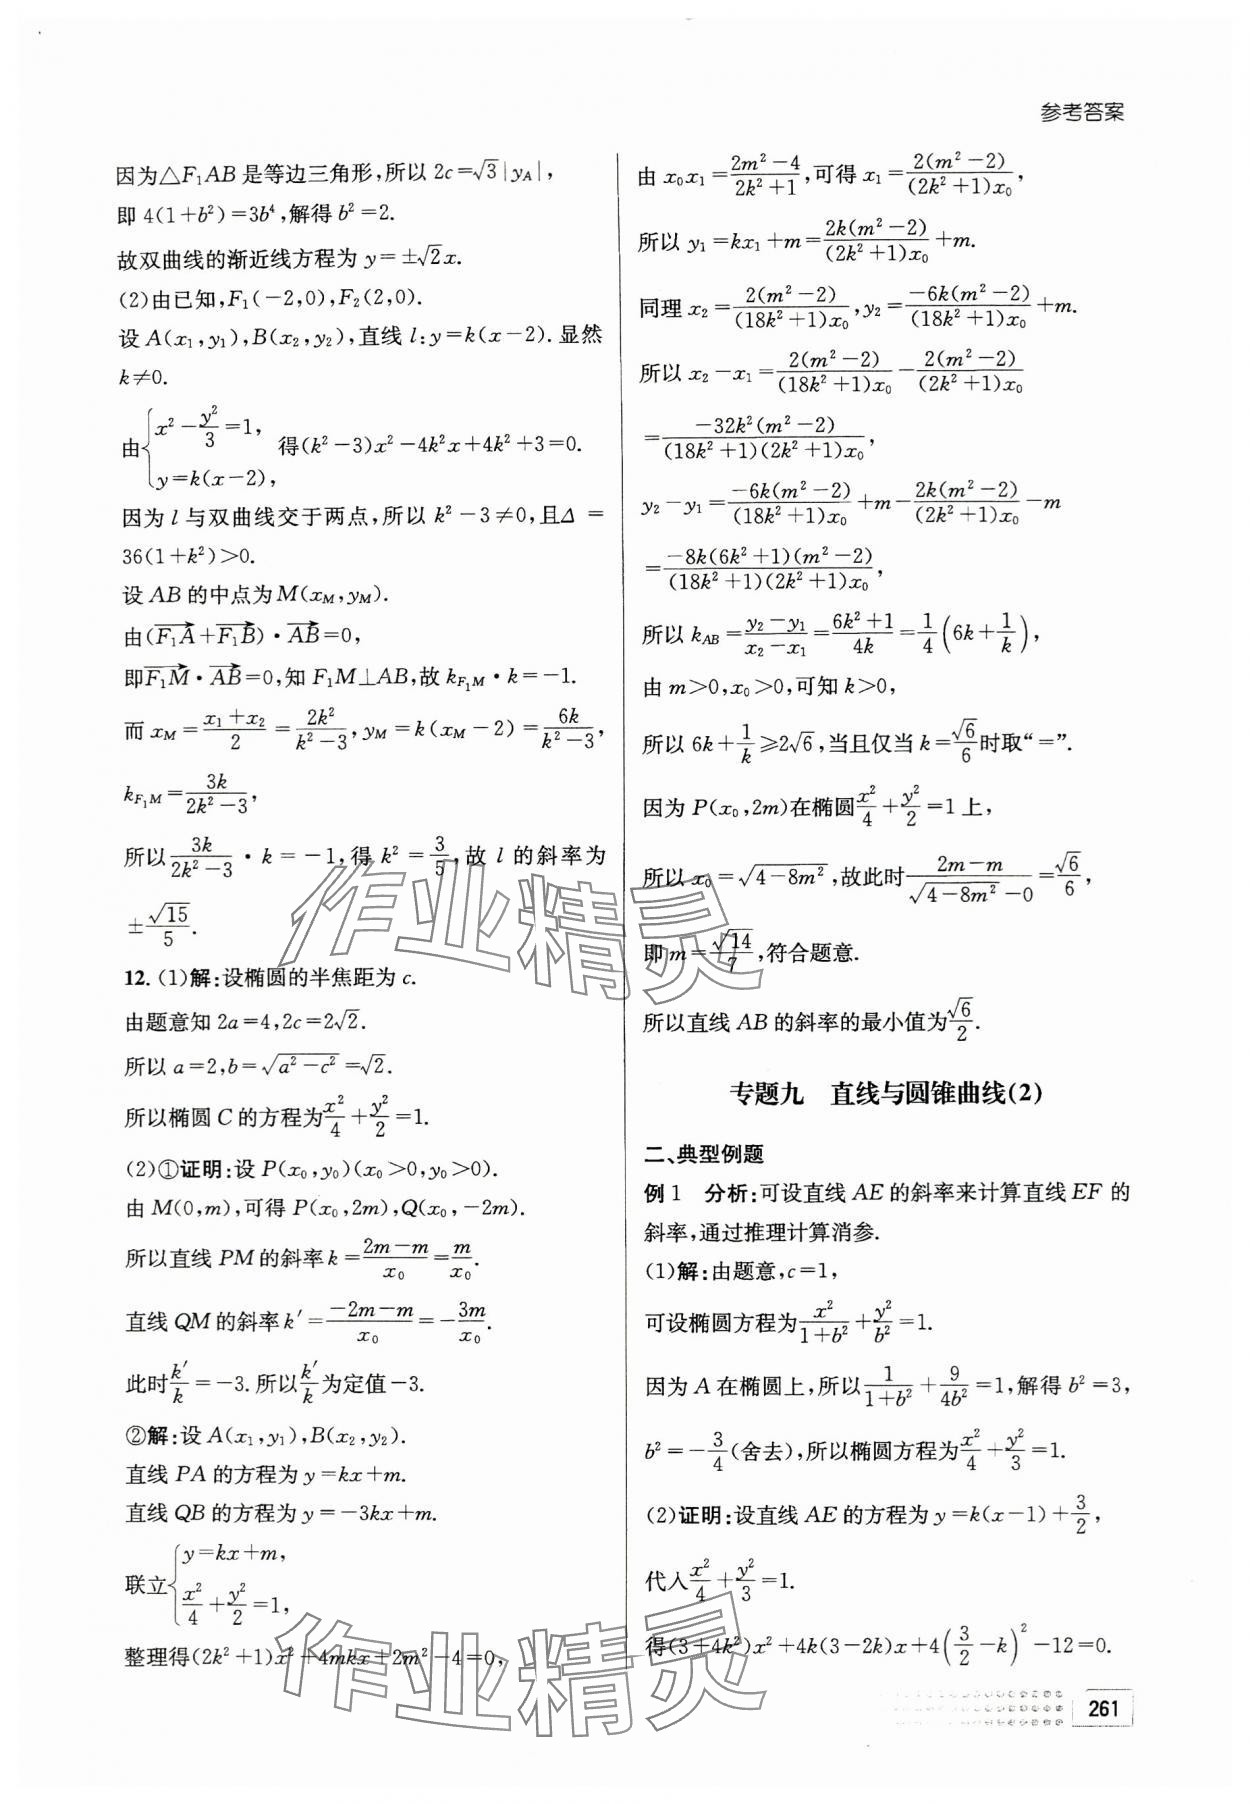 参考答案
因为△F₁AB是等边三角形,所以2c=√3|y_A|,
即4(1+b²)=3b⁴,解得b²=2.
故双曲线的渐近线方程为y=±√2x.
(2)由已知,F₁(-2,0),F₂(2,0).
设A(x₁,y₁),B(x₂,y₂),直线l:y=k(x-2).显然
k≠0.
由{x²-y²/3=1, y=k(x-2), 得(k²-3)x²-4k²x+4k²+3=0.
因为l与双曲线交于两点,所以k²-3≠0,且Δ=
36(1+k²)>0.
设AB的中点为M(x_M,y_M).
由(→F₁A+→F₁B)·→AB=0,
即→F₁M·→AB=0,知F₁M⊥AB,故k_{F₁M}·k=-1.
而x_M=(x₁+x₂)/2=2k²/(k²-3),y_M=k(x_M-2)=6k/(k²-3),
k_{F₁M}=3k/(2k²-3),
所以3k/(2k²-3)·k=-1,得k²=3/5,故l的斜率为
±√15/5.
12.(1)解:设椭圆的半焦距为c.
由题意知2a=4,2c=2√2.
所以a=2,b=√(a²-c²)=√2.
所以椭圆C的方程为x²/4+y²/2=1.
(2)①证明:设P(x₀,y₀)(x₀>0,y₀>0).
由M(0,m),可得P(x₀,2m),Q(x₀,-2m).
所以直线PM的斜率k=(2m-m)/x₀=m/x₀.
直线QM的斜率k′=(-2m-m)/x₀=-3m/x₀.
此时k′/k=-3.所以k′/k为定值-3.
②解:设A(x₁,y₁),B(x₂,y₂).
直线PA的方程为y=kx+m.
直线QB的方程为y=-3kx+m.
联立{y=kx+m, x²/4+y²/2=1,
整理得(2k²+1)x²+4mkx+2m²-4=0,
由x₀x₁=(2m²-4)/(2k²+1),可得x₁=2(m²-2)/((2k²+1)x₀),
所以y₁=kx₁+m=2k(m²-2)/((2k²+1)x₀)+m.
同理x₂=2(m²-2)/((18k²+1)x₀),y₂=-6k(m²-2)/((18k²+1)x₀)+m.
所以x₂-x₁=2(m²-2)/((18k²+1)x₀)-2(m²-2)/((2k²+1)x₀)
=-32k²(m²-2)/((18k²+1)(2k²+1)x₀),
y₂-y₁=-6k(m²-2)/((18k²+1)x₀)+m-2k(m²-2)/((2k²+1)x₀)-m
=-8k(6k²+1)(m²-2)/((18k²+1)(2k²+1)x₀),
所以k_AB=(y₂-y₁)/(x₂-x₁)=(6k²+1)/4k=1/4(6k+1/k),
由m>0,x₀>0,可知k>0,
所以6k+1/k≥2√6,当且仅当k=√6/6时取“=”.
因为P(x₀,2m)在椭圆x²/4+y²/2=1上,
所以x₀=√(4-8m²),故此时(2m-m)/(√(4-8m²)-0)=√6/6,
即m=√14/7,符合题意.
所以直线AB的斜率的最小值为√6/2.
专题九 直线与圆锥曲线(2)
二、典型例题
例1 分析:可设直线AE的斜率来计算直线EF的
斜率,通过推理计算消参.
(1)解:由题意,c=1,
可设椭圆方程为x²/(1+b²)+y²/b²=1.
因为A在椭圆上,所以1/(1+b²)+9/4b²=1,解得b²=3,
b²=-3/4(舍去),所以椭圆方程为x²/4+y²/3=1.
(2)证明:设直线AE的方程为y=k(x-1)+3/2,
代入x²/4+y²/3=1.
得(3+4k²)x²+4k(3-2k)x+4(3/2-k)²-12=0.
261
作业精灵
作业精灵